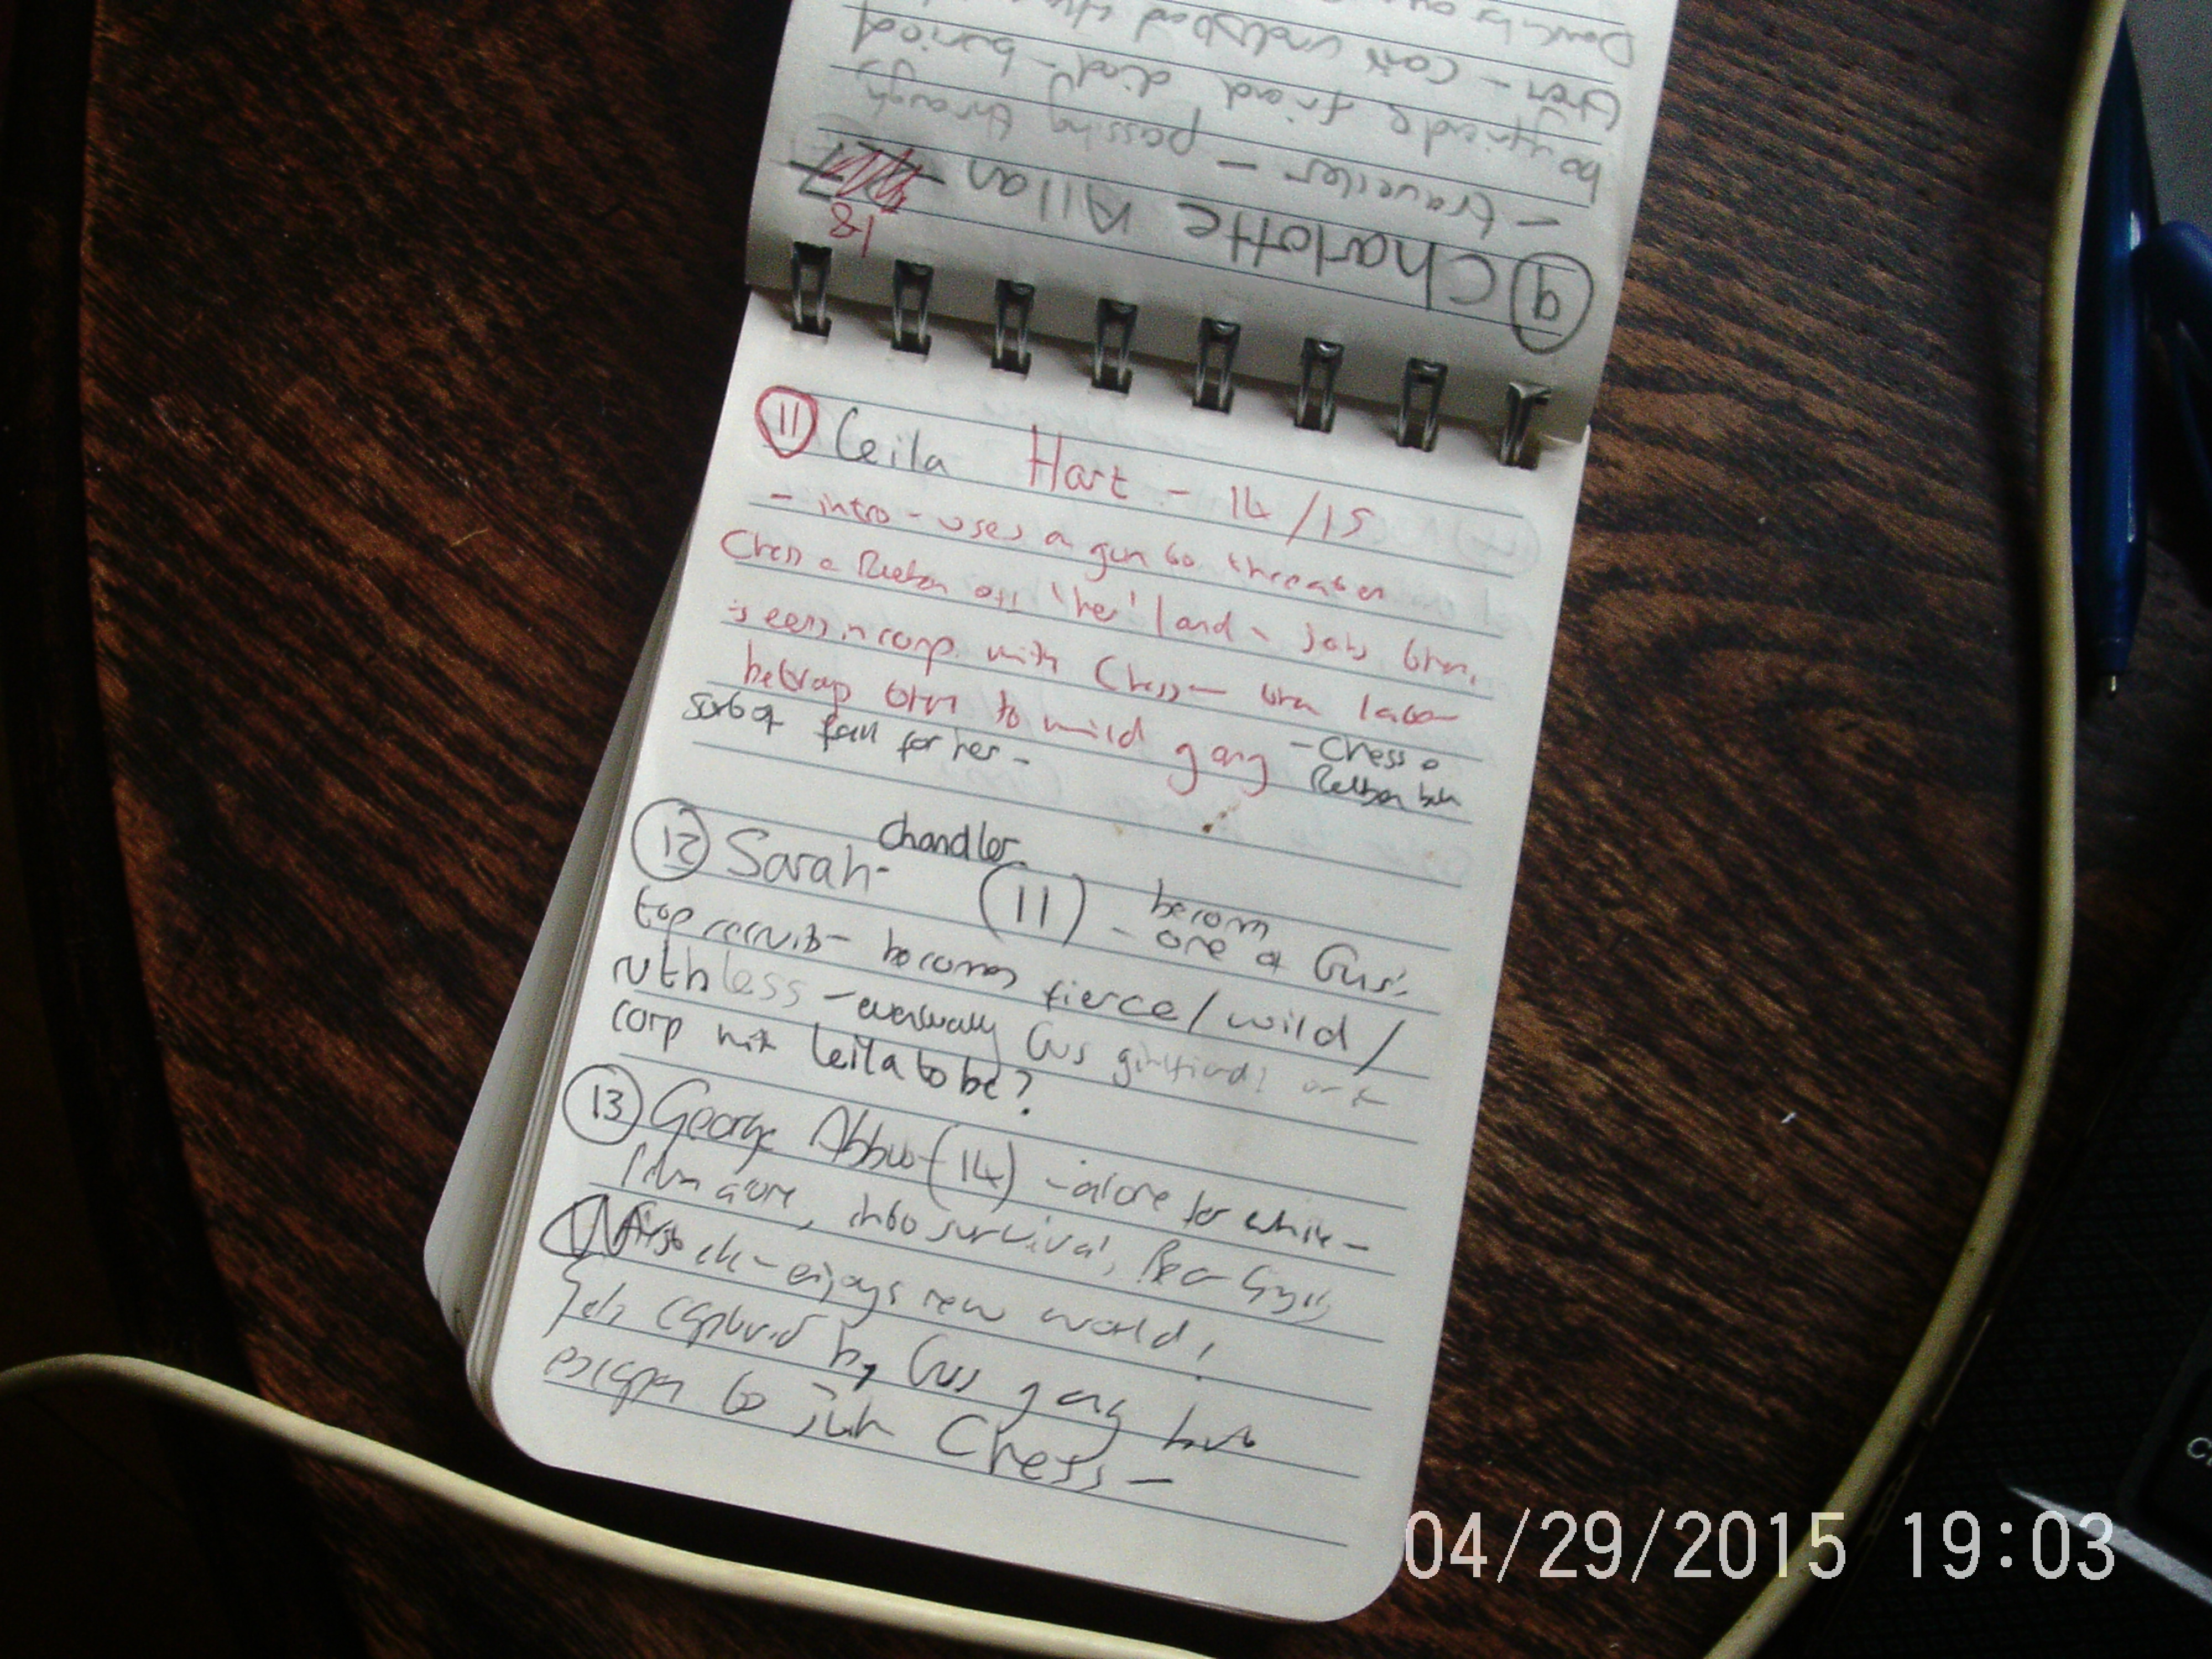 ⑨ Charlotte Allan - 17 18
- traveller - passing through
boyfriend & friend died - buried
them - can't understand
⑪ Leila Hart - 14/15
- intro - uses a gun to threaten
Chess & Reuben off 'her' land - joins them,
is seen in comp. with Chess - then later
betrays them to wild gang - Chess &
Reuben both
sort of fall for her -
⑫ Sarah - Chandler
(11) - becom one of Gus'
top recruits - becomes fierce / wild /
ruthless - eventually Gus girlfriend? or
comp with Leila to be?
⑬ George (14) - alone for while -
alone, into survival, Bear Grylls
first - enjoys new world,
gets captured by Gus gang but
escapes to join Chess -
04/29/2015 19:03